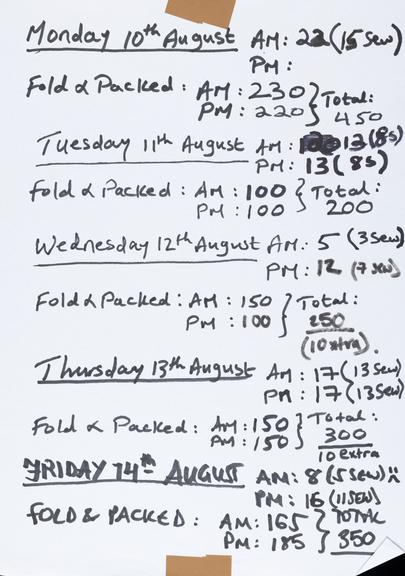 Monday 10th August AM: 22 (15 sew)
PM:
Fold & Packed: AM: 230 } Total:
PM: 220 450
Tuesday 11th August AM: 12 (8s)
PM: 13 (8s)
Fold & Packed: AM: 100 } Total:
PM: 100 200
Wednesday 12th August AM: 5 (3 sew)
PM: 12 (7 sew)
Fold & Packed: AM: 150 } Total:
PM: 100 250
(10 xtra).
Thursday 13th August AM: 17 (13 sew)
PM: 17 (13 sew)
Fold & Packed: AM: 150 } Total:
PM: 150 300
10 extra
FRIDAY 14th AUGUST AM: 8 (5 SEW)
PM: 16 (11 SEW)
FOLD & PACKED: AM: 165 } TOTAL
PM: 185 350